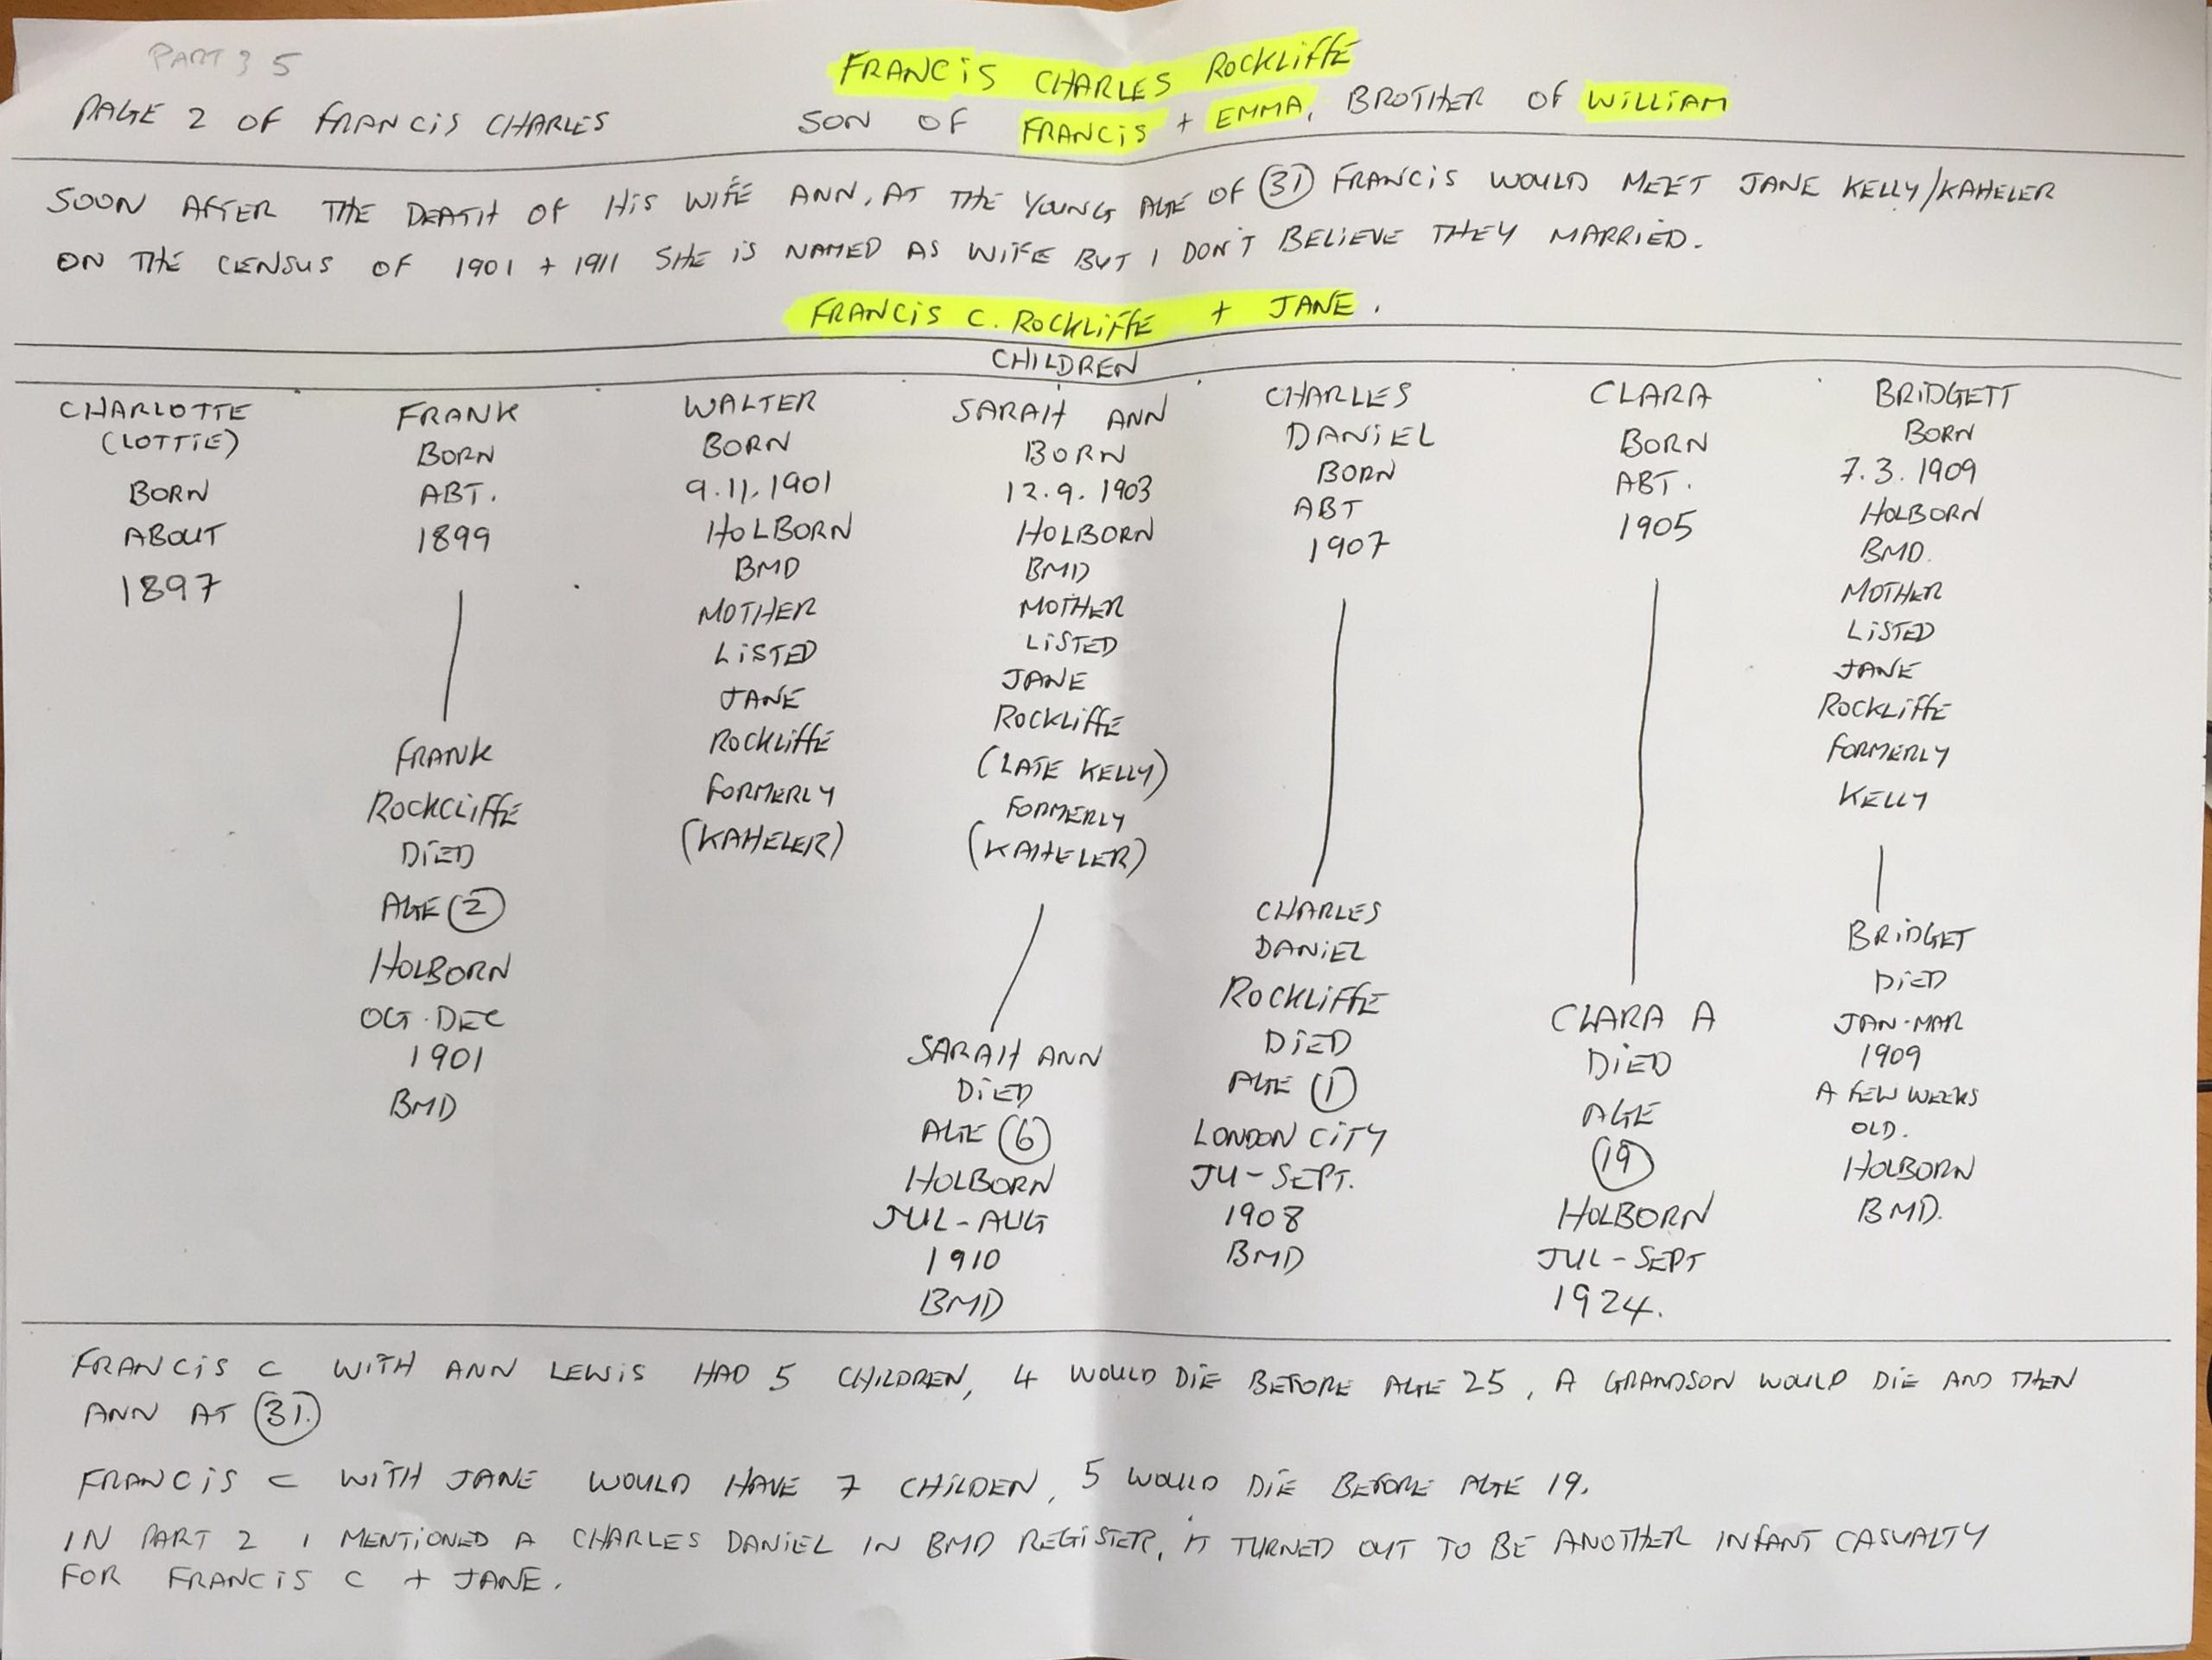 PART 3 5
FRANCIS CHARLES ROCKLIFFE
PAGE 2 OF FRANCIS CHARLES
SON OF FRANCIS + EMMA, BROTHER OF WILLIAM
SOON AFTER THE DEATH OF HIS WIFE ANN, AT THE YOUNG AGE OF 31 FRANCIS WOULD MEET JANE KELLY/KAHELER
ON THE CENSUS OF 1901 + 1911 SHE IS NAMED AS WIFE BUT I DON'T BELIEVE THEY MARRIED.
FRANCIS C. ROCKLIFFE + JANE.
CHILDREN
CHARLOTTE
(LOTTIE)
BORN
ABOUT
1897
FRANK
BORN
ABT.
1899
FRANK
ROCKCLIFFE
DIED
AGE 2
HOLBORN
OCT-DEC
1901
BMD
WALTER
BORN
9.11.1901
HOLBORN
BMD
MOTHER
LISTED
JANE
ROCKLIFFE
FORMERLY
(KAHELER)
SARAH ANN
BORN
12.9.1903
HOLBORN
BMD
MOTHER
LISTED
JANE
ROCKLIFFE
(LATE KELLY)
FORMERLY
(KAHELER)
SARAH ANN
DIED
AGE 6
HOLBORN
JUL-AUG
1910
BMD
CHARLES
DANIEL
BORN
ABT
1907
CHARLES
DANIEL
ROCKLIFFE
DIED
AGE 1
LONDON CITY
JU-SEPT.
1908
BMD
CLARA
BORN
ABT.
1905
CLARA A
DIED
AGE
19
HOLBORN
JUL-SEPT
1924.
BRIDGETT
BORN
7.3.1909
HOLBORN
BMD.
MOTHER
LISTED
JANE
ROCKLIFFE
FORMERLY
KELLY
BRIDGET
DIED
JAN-MAR
1909
A FEW WEEKS
OLD.
HOLBORN
BMD.
FRANCIS C WITH ANN LEWIS HAD 5 CHILDREN, 4 WOULD DIE BEFORE AGE 25, A GRANDSON WOULD DIE AND THEN
ANN AT 31.
FRANCIS C WITH JANE WOULD HAVE 7 CHILDEN, 5 WOULD DIE BEFORE AGE 19.
IN PART 2 I MENTIONED A CHARLES DANIEL IN BMD REGISTER, IT TURNED OUT TO BE ANOTHER INFANT CASUALTY
FOR FRANCIS C + JANE.